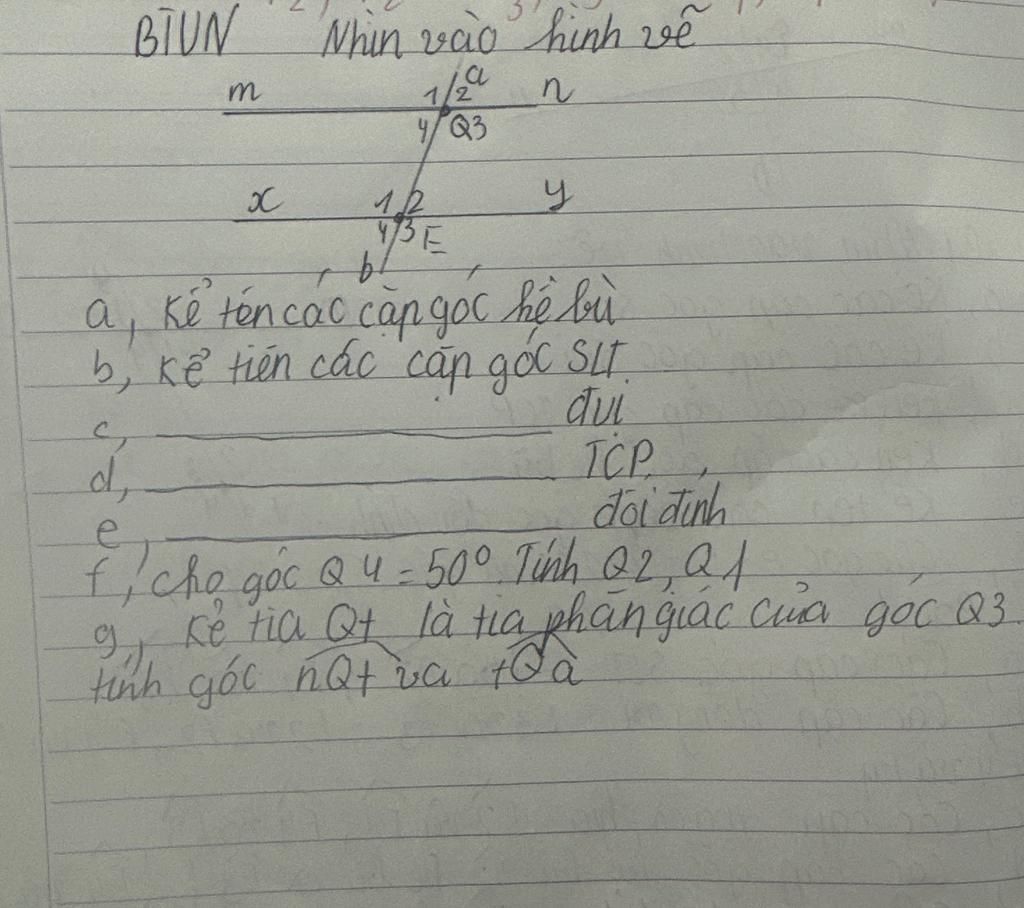 BTVN Nhìn vào hình vẽ
1 2 a
m n
4 Q3
x 1 2 y
4 3 E
b
a, Kể tên các cặp góc kề bù
b, Kể tiên các cặp góc SLT
c, đvị
d, TCP
e, đối đỉnh
f, Cho góc Q4 = 50°. Tính Q2, Q1
g, Kẻ tia Qt là tia phân giác của góc Q3.
tính góc nQt và tQa